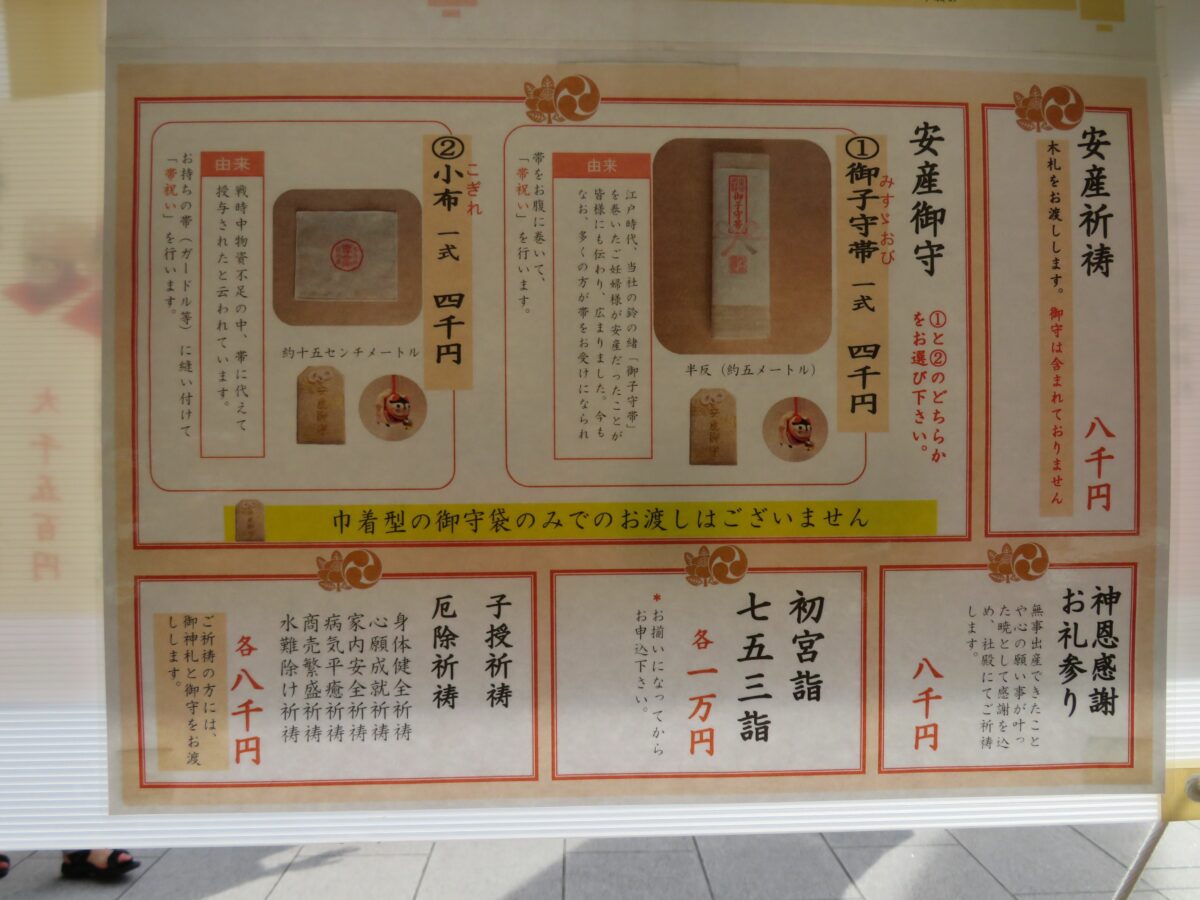 安産祈祷
木札をお渡しします。御守は含まれておりません
八千円
安産御守
①と②のどちらか
をお選び下さい。
みすゞおび
①御子守帯 一式 四千円
半反（約五メートル）
由来
江戸時代、当社の鈴の緒「御子守帯」
を巻いたご妊婦様が安産だったことが
皆様にも伝わり、広まりました。今も
なお、多くの方が帯をお受けになられ
帯をお腹に巻いて、
「帯祝い」を行います。
こぎれ
②小布 一式 四千円
約十五センチメートル
由来
戦時中物資不足の中、帯に代えて
授与されたと云われています。
お持ちの帯（ガードル等）に縫い付けて
「帯祝い」を行います。
巾着型の御守袋のみでのお渡しはございません
神恩感謝
お礼参り
無事出産できたこと
や心の願い事が叶っ
た暁として感謝を込
め、社殿にてご祈祷
します。
八千円
初宮詣
七五三詣
各一万円
*お揃いになってから
お申込下さい。
子授祈祷
厄除祈祷
身体健全祈祷
心願成就祈祷
家内安全祈祷
病気平癒祈祷
商売繁盛祈祷
水難除け祈祷
各八千円
ご祈祷の方には、
御神札と御守をお渡
しします。
六千五百円